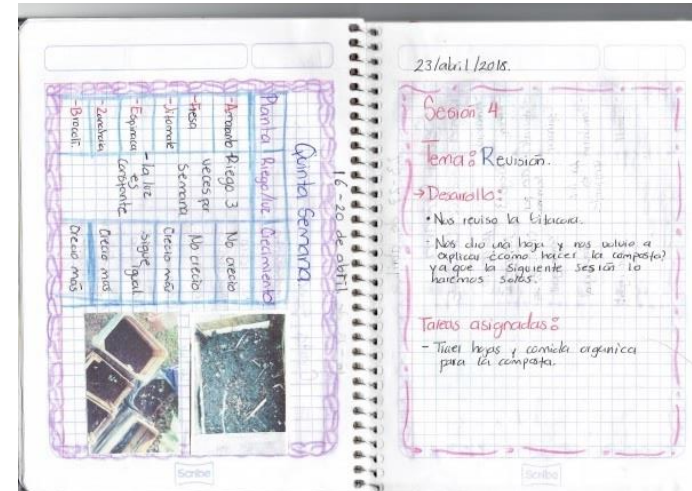 Quinta Semana
16-20 de abril
Planta Riego/luz Crecimiento
-Amaranto Riego 3 No crecio
-Fresa veces por No crecio
-Jitomate semana Crecio más
-Espinaca -la luz Sigue igual
-Zanahoria es Crecio mas
-Brocoli. constante Crecio más
Scribe
23/abril/2018.
Sesión 4
Tema: Revisión.
→Desarrollo:
• Nos reviso la bitacora.
• Nos dio una hoja y nos volvio a
aplicar ¿como hacer la composta?
ya que la siguiente sesión lo
haremos solos.
Tareas asignadas:
- Traer hojas y comida organica
para la composta.
Scribe